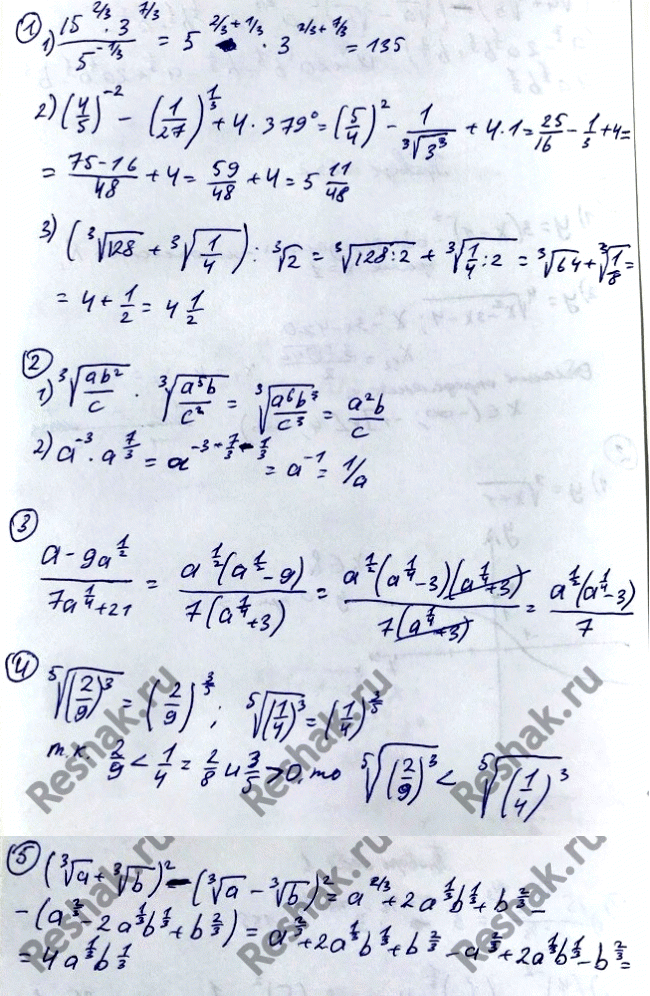 ① 1) (15^(2/3) · 3^(7/3)) / 5^(-1/3) = 5^(2/3+1/3) · 3^(2/3+7/3) = 135
2) (4/5)^(-2) - (1/27)^(1/3) + 4 · 379° = (5/4)² - 1/∛(3³) + 4·1 = 25/16 - 1/3 + 4 =
= (75-16)/48 + 4 = 59/48 + 4 = 5 11/48
3) (∛128 + ∛(1/4)) : ∛2 = ∛(128:2) + ∛(1/4 : 2) = ∛64 + ∛(1/8) =
= 4 + 1/2 = 4 1/2
②
1) ∛(ab²/c) · ∛(a⁵b/c²) = ∛(a⁶b³/c³) = a²b/c
2) a^(-3) · a^(7/3) = a^(-3+7/3-1/3) = a^(-1) = 1/a
③
(a - 9a^(1/2)) / (7a^(1/4)+21) = (a^(1/2)(a^(1/2)-9)) / (7(a^(1/4)+3)) = (a^(1/2)(a^(1/4)-3)(a^(1/4)+3)) / (7(a^(1/4)+3)) = (a^(1/2)(a^(1/4)-3)) / 7
④
⁵√((2/9)³) = (2/9)^(3/5) ; ⁵√((1/4)³) = (1/4)^(3/5)
т.к. 2/9 < 1/4 = 2/8 и 3/5 > 0, то ⁵√((2/9)³) < ⁵√((1/4)³)
⑤ (∛a + ∛b)² - (∛a - ∛b)² = a^(2/3) + 2a^(1/3)b^(1/3) + b^(2/3) -
- (a^(2/3) - 2a^(1/3)b^(1/3) + b^(2/3)) = a^(2/3) + 2a^(1/3)b^(1/3) + b^(2/3) - a^(2/3) + 2a^(1/3)b^(1/3) - b^(2/3) =
= 4a^(1/3)b^(1/3)
Reshak.ru
Reshak.ru
Reshak.ru